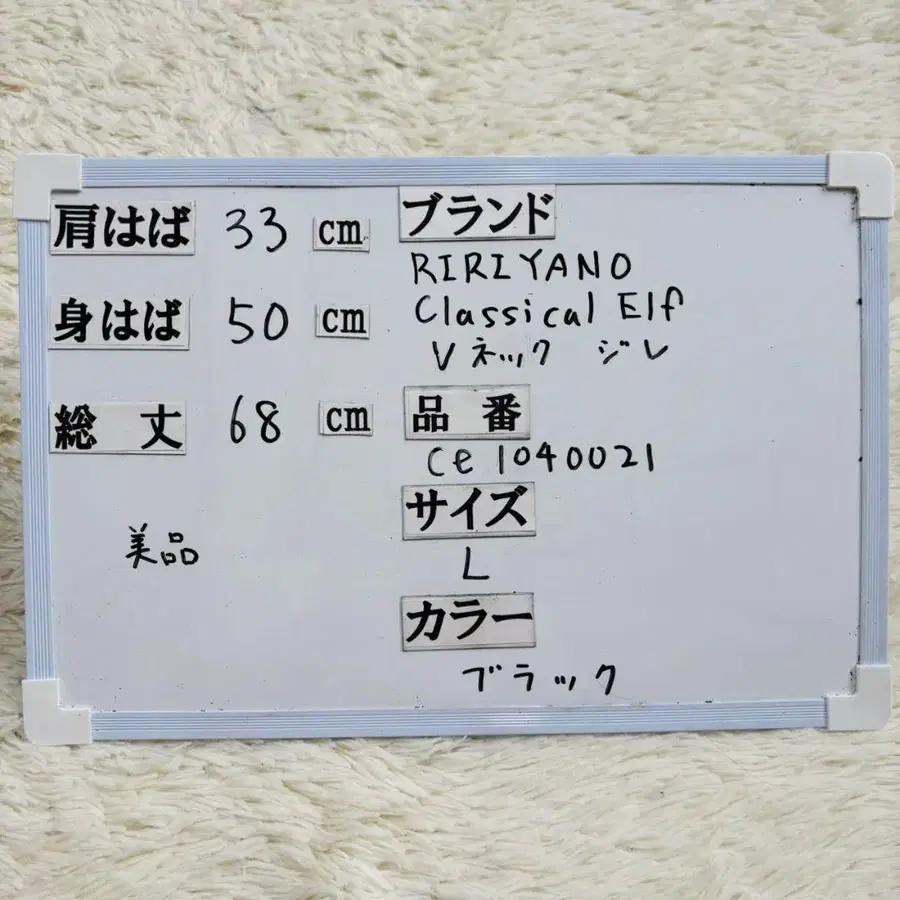 肩はば 33 cm
身はば 50 cm
総丈 68 cm
美品
ブランド
RIRIYANO
Classical Elf
Vネック ジレ
品番
ce1040021
サイズ
L
カラー
ブラック